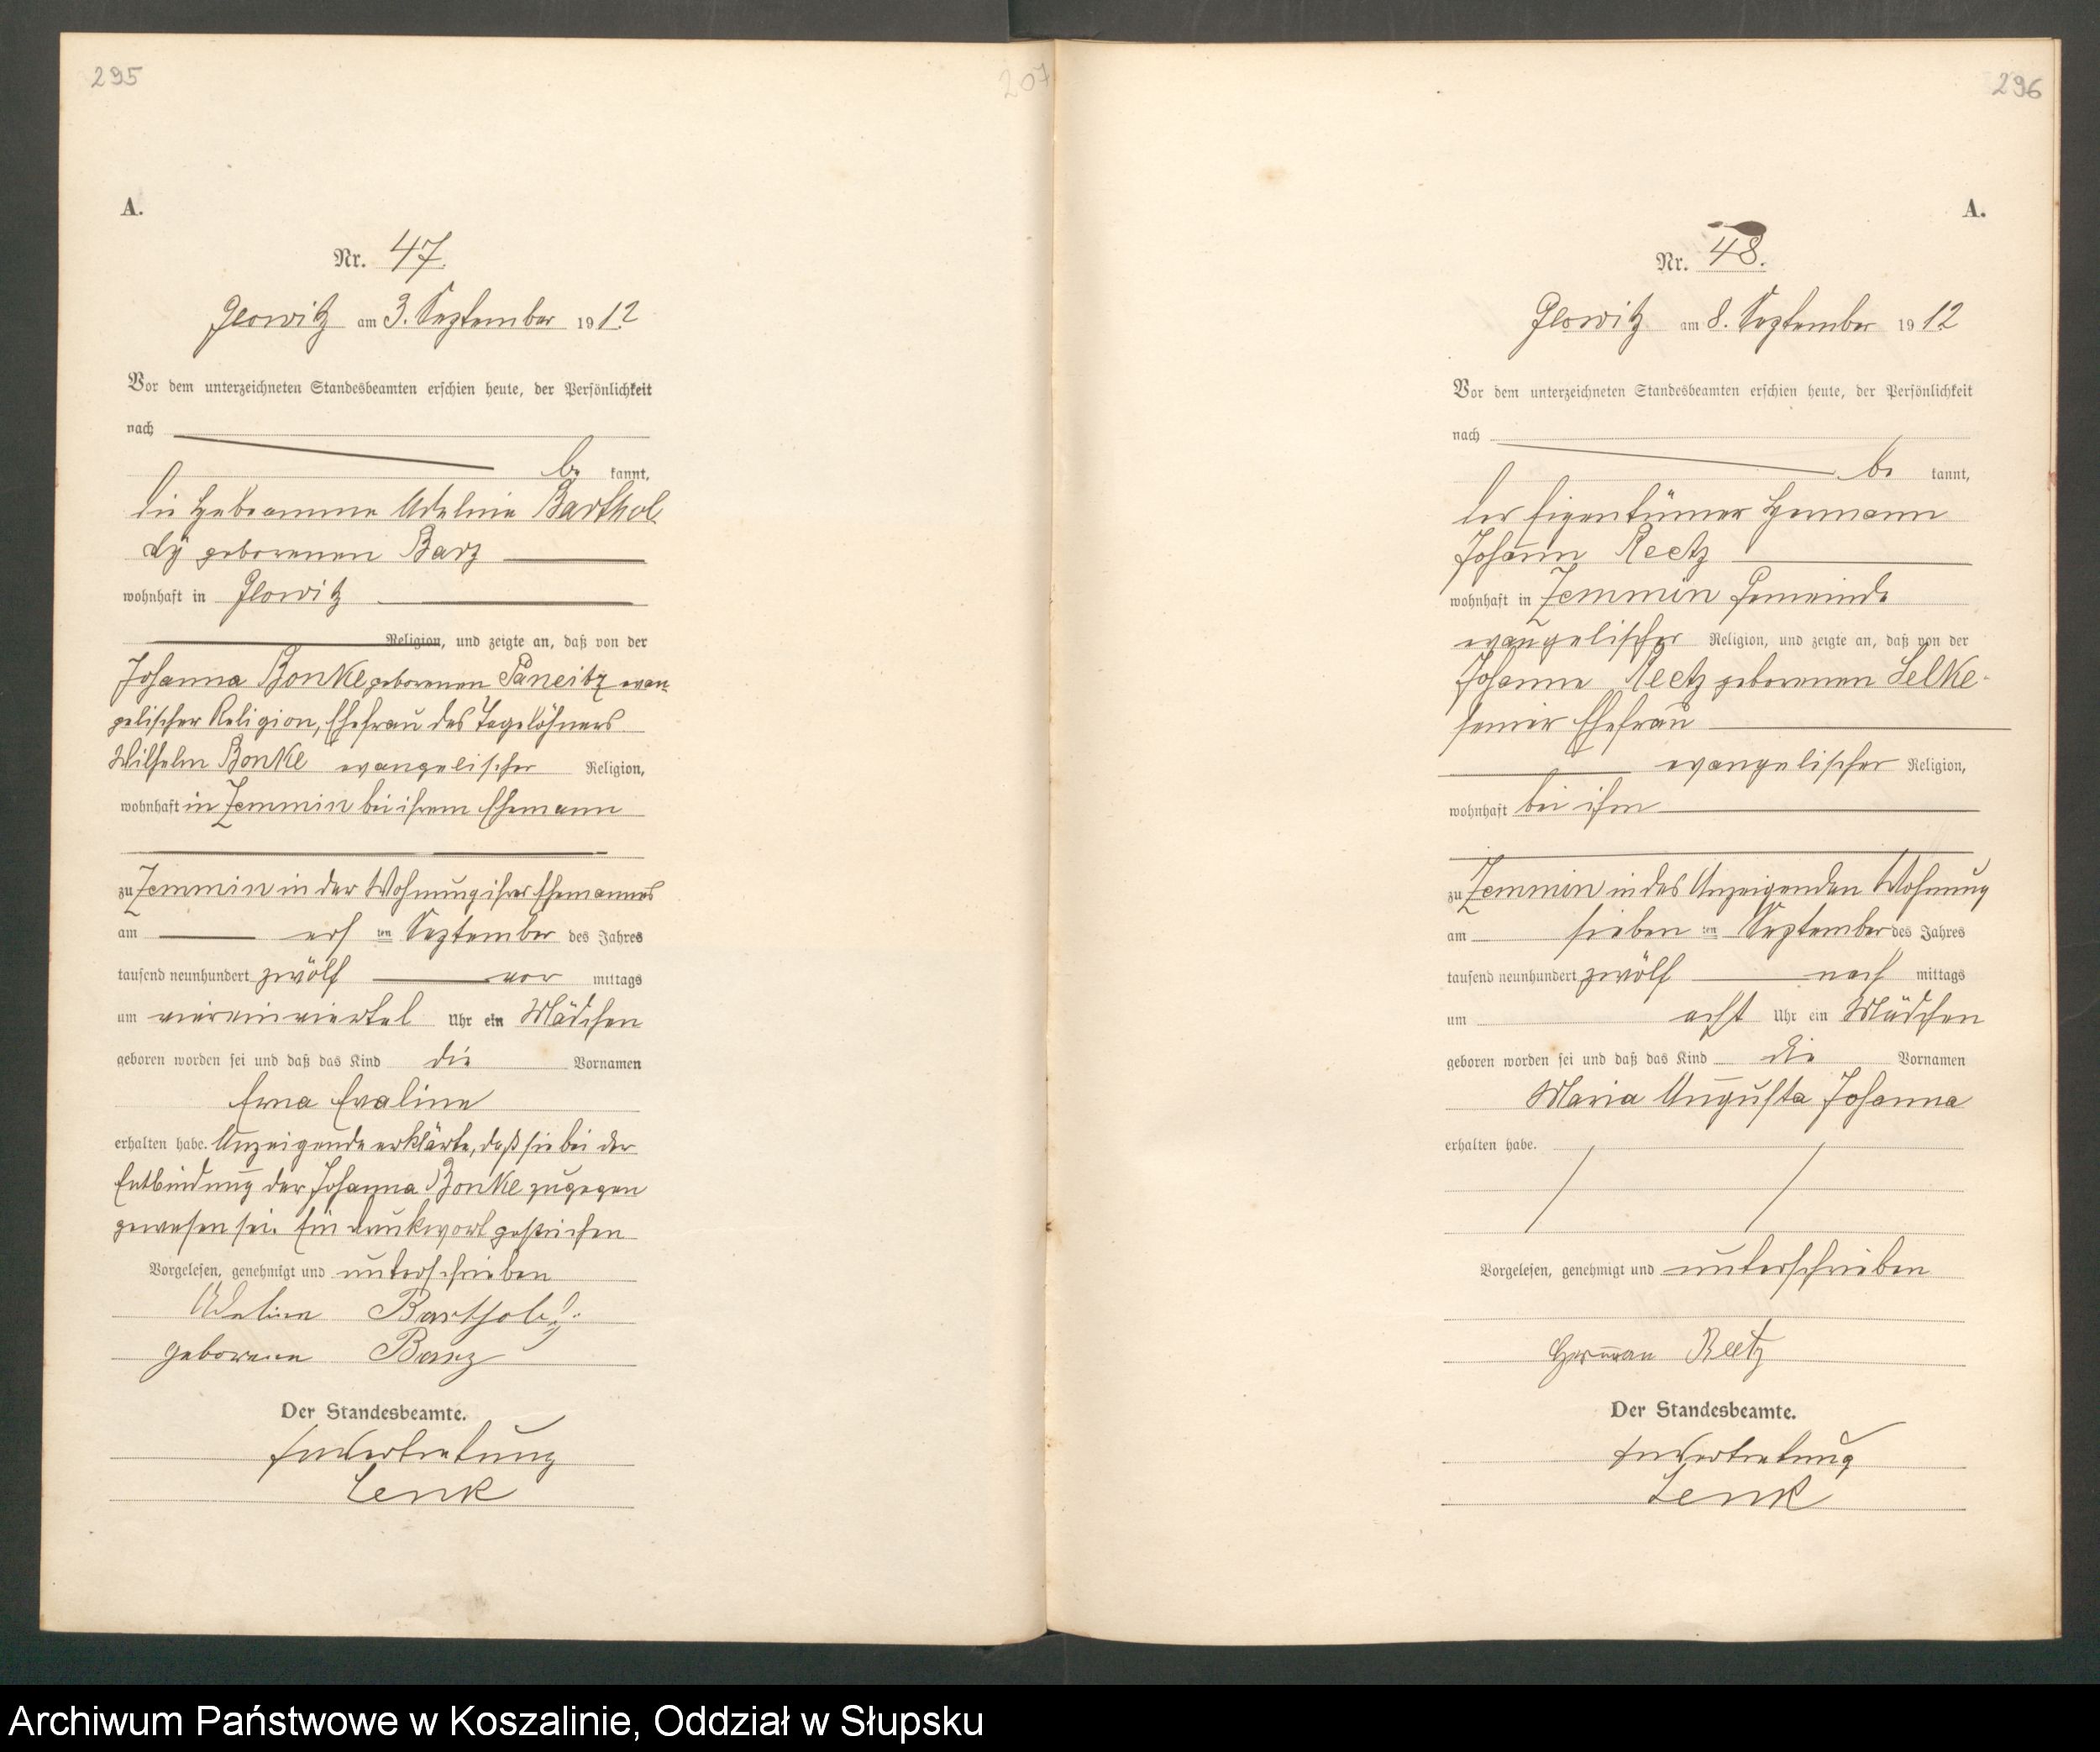 295
207
A.
Nr. 47.
Glowitz am 3. September 1912
Vor dem unterzeichneten Standesbeamten erschien heute, der Persönlichkeit
nach
be kannt,
die Hebeamme Adeline Barthol
dÿ geborenen Barz
wohnhaft in Glowitz
Religion, und zeigte an, daß von der
Johanna Bonke geborenen Paneitz evan-
gelischer Religion, Ehefrau des Tagelöhners
Wilhelm Bonke evangelischer Religion,
wohnhaft in Zemmin bei ihrem Ehemann
zu Zemmin in der Wohnung ihres Ehemannes
am ersten September des Jahres
tausend neunhundert zwölf vor mittags
um viereinviertel Uhr ein Mädchen
geboren worden sei und daß das Kind die Vornamen
Erna Evaline
erhalten habe. Anzeigende erklärte, daß sie bei der
Entbindung der Johanna Bonke zugegen
gewesen sei. Ein Druckwort gestrichen
Vorgelesen, genehmigt und unterschrieben
Adeline Bartholdy
geborene Barz
Der Standesbeamte.
In Vertretung
Lenk
296
A.
Nr. 48.
Glowitz am 8. September 1912
Vor dem unterzeichneten Standesbeamten erschien heute, der Persönlichkeit
nach
be kannt,
der Eigentümer Hermann
Johann Reetz
wohnhaft in Zemmin Gemeinde
evangelischer Religion, und zeigte an, daß von der
Johanne Reetz geborenen Selke
seiner Ehefrau
evangelischer Religion,
wohnhaft bei ihm
zu Zemmin in des Anzeigenden Wohnung
am siebenten September des Jahres
tausend neunhundert zwölf nach mittags
um acht Uhr ein Mädchen
geboren worden sei und daß das Kind die Vornamen
Maria Augusta Johanna
erhalten habe.
Vorgelesen, genehmigt und unterschrieben
Herman Reetz
Der Standesbeamte.
In Vertretung
Lenk
Archiwum Państwowe w Koszalinie, Oddział w Słupsku